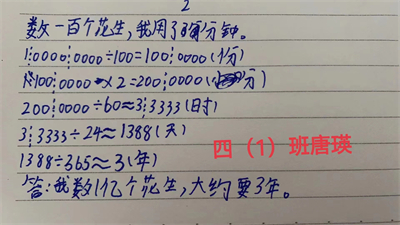 2
数一百个花生,我用了2分钟。
1¦0000¦0000÷100=100¦0000(份)
100¦0000×2=200¦0000(分)
200¦0000÷60≈3¦3333(时)
3¦3333÷24≈1388(天)
1388÷365≈3(年)
四(1)班唐瑛
答:我数1亿个花生,大约要3年。